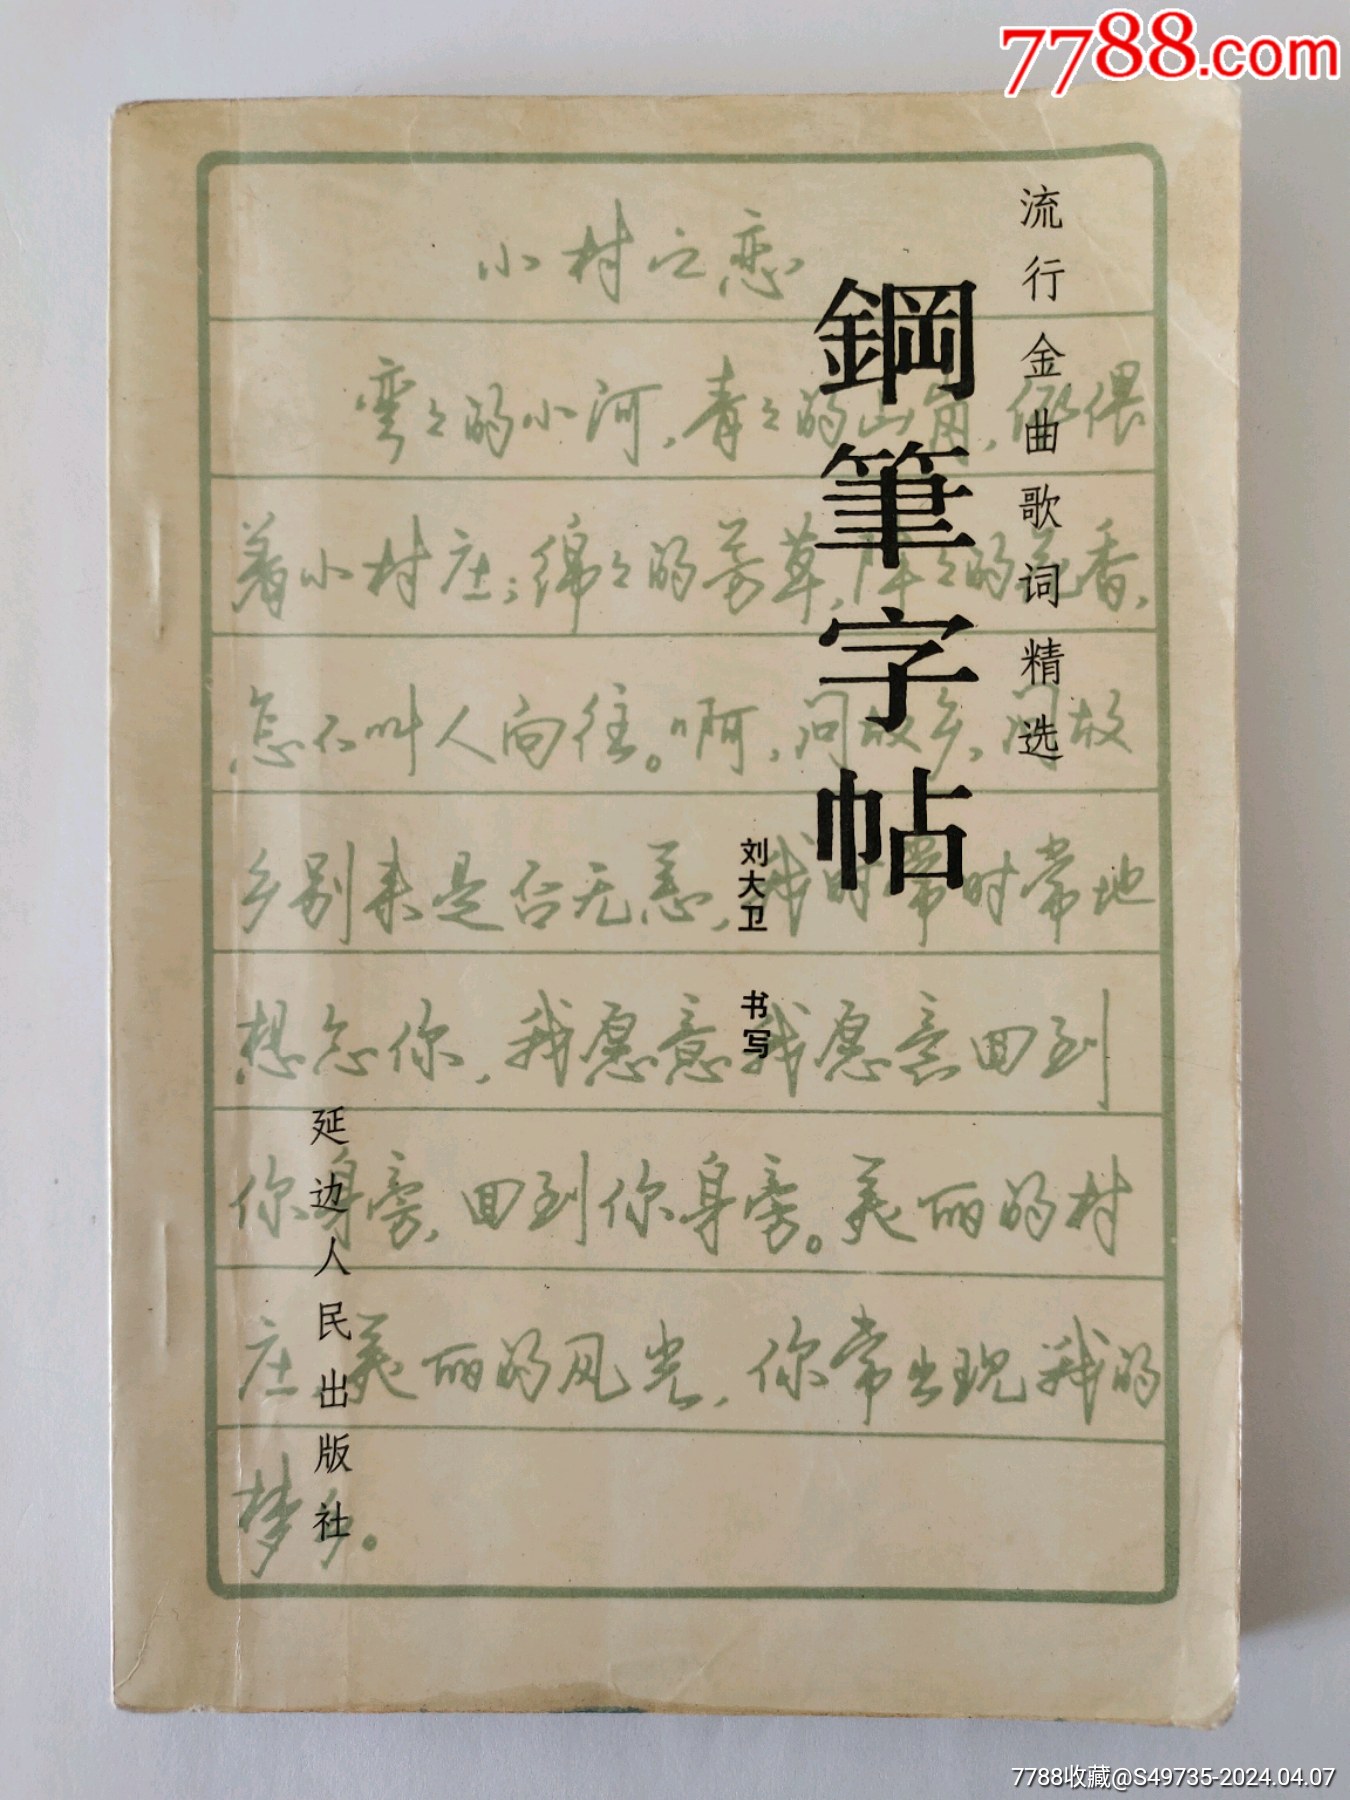 7788.com
流行金曲歌词精选
鋼筆字帖
刘大卫 书写
延边人民出版社
小村之恋
弯々的小河，青々的山岗，依偎
着小村庄；绵々的芳草，阵々的花香，
怎不叫人向往。啊，问故乡，问故
乡别来是否无恙，我时常时常地
想念你，我愿意我愿意回到
你身旁，回到你身旁。美丽的村
庄，美丽的风光，你常出现我的
梦乡。
7788收藏@S49735-2024.04.07